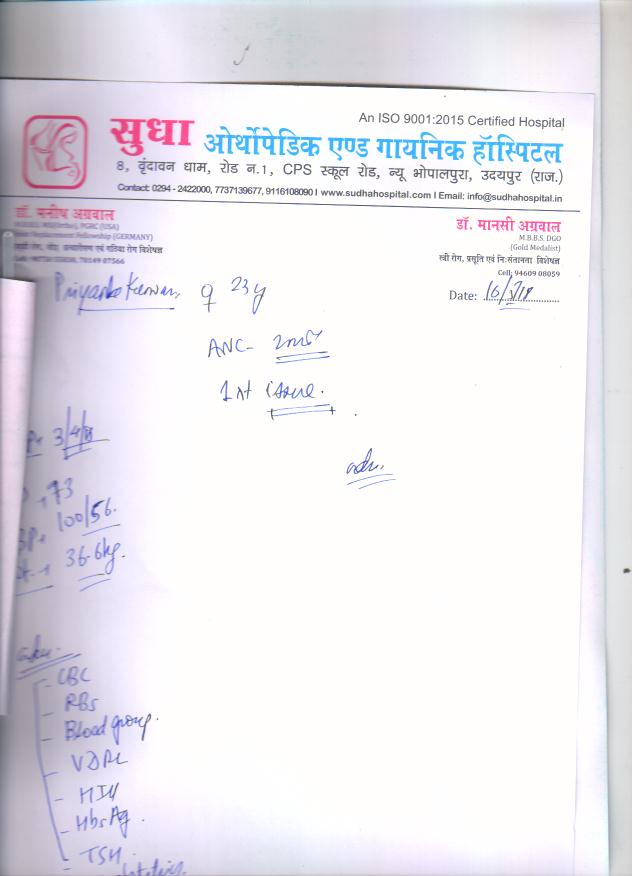 An ISO 9001:2015 Certified Hospital
सुधा ओर्थोपेडिक एण्ड गायनिक हॉस्पिटल
8, वृंदावन धाम, रोड न.1, CPS स्कूल रोड, न्यू भोपालपुरा, उदयपुर (राज.)
Contact: 0294 - 2422000, 7737139677, 9116108090 I www.sudhahospital.in I Email: info@sudhahospital.in
डॉ. मनीष अग्रवाल
Replacement Fellowship (GERMANY)
डॉ. मानसी अग्रवाल
M.B.B.S. DGO
(Gold Medalist)
स्त्री रोग, प्रसूति एवं निःसंतानता विशेषज्ञ
Cell: 94609 08059
Date:
23 y
ANC-
1st issue.
3/4/18
73
BP 100/56.
36.6kg.
adv.
CBC
RBS
Blood group.
VDRL
HIV
HbsAg.
TSH